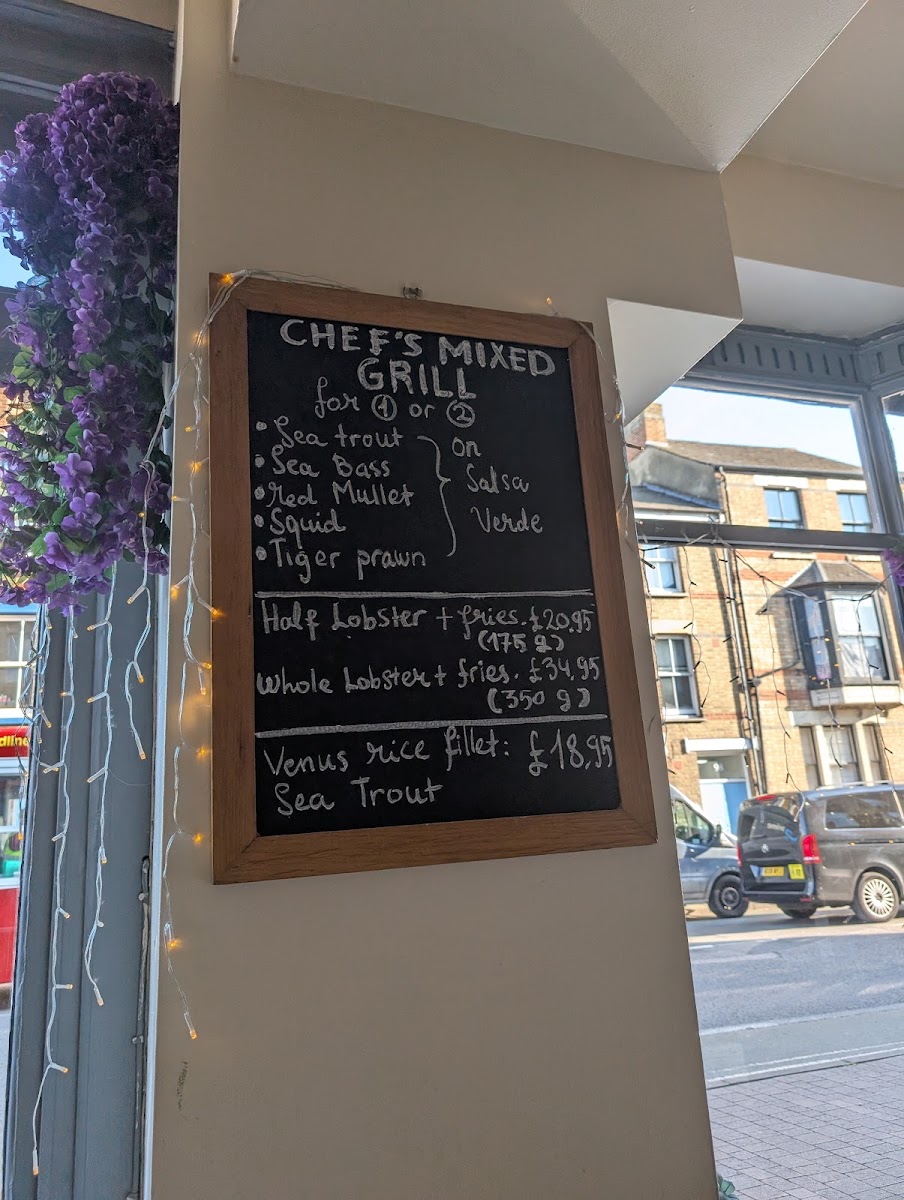 CHEF'S MIXED
GRILL
for 1 or 2
• Sea trout
• Sea Bass
• Red Mullet
• Squid
• Tiger prawn
on
Salsa
Verde
Half Lobster + fries. £20,95
(175 g)
Whole Lobster + fries. £34,95
(350 g)
Venus rice fillet: £18,95
Sea Trout